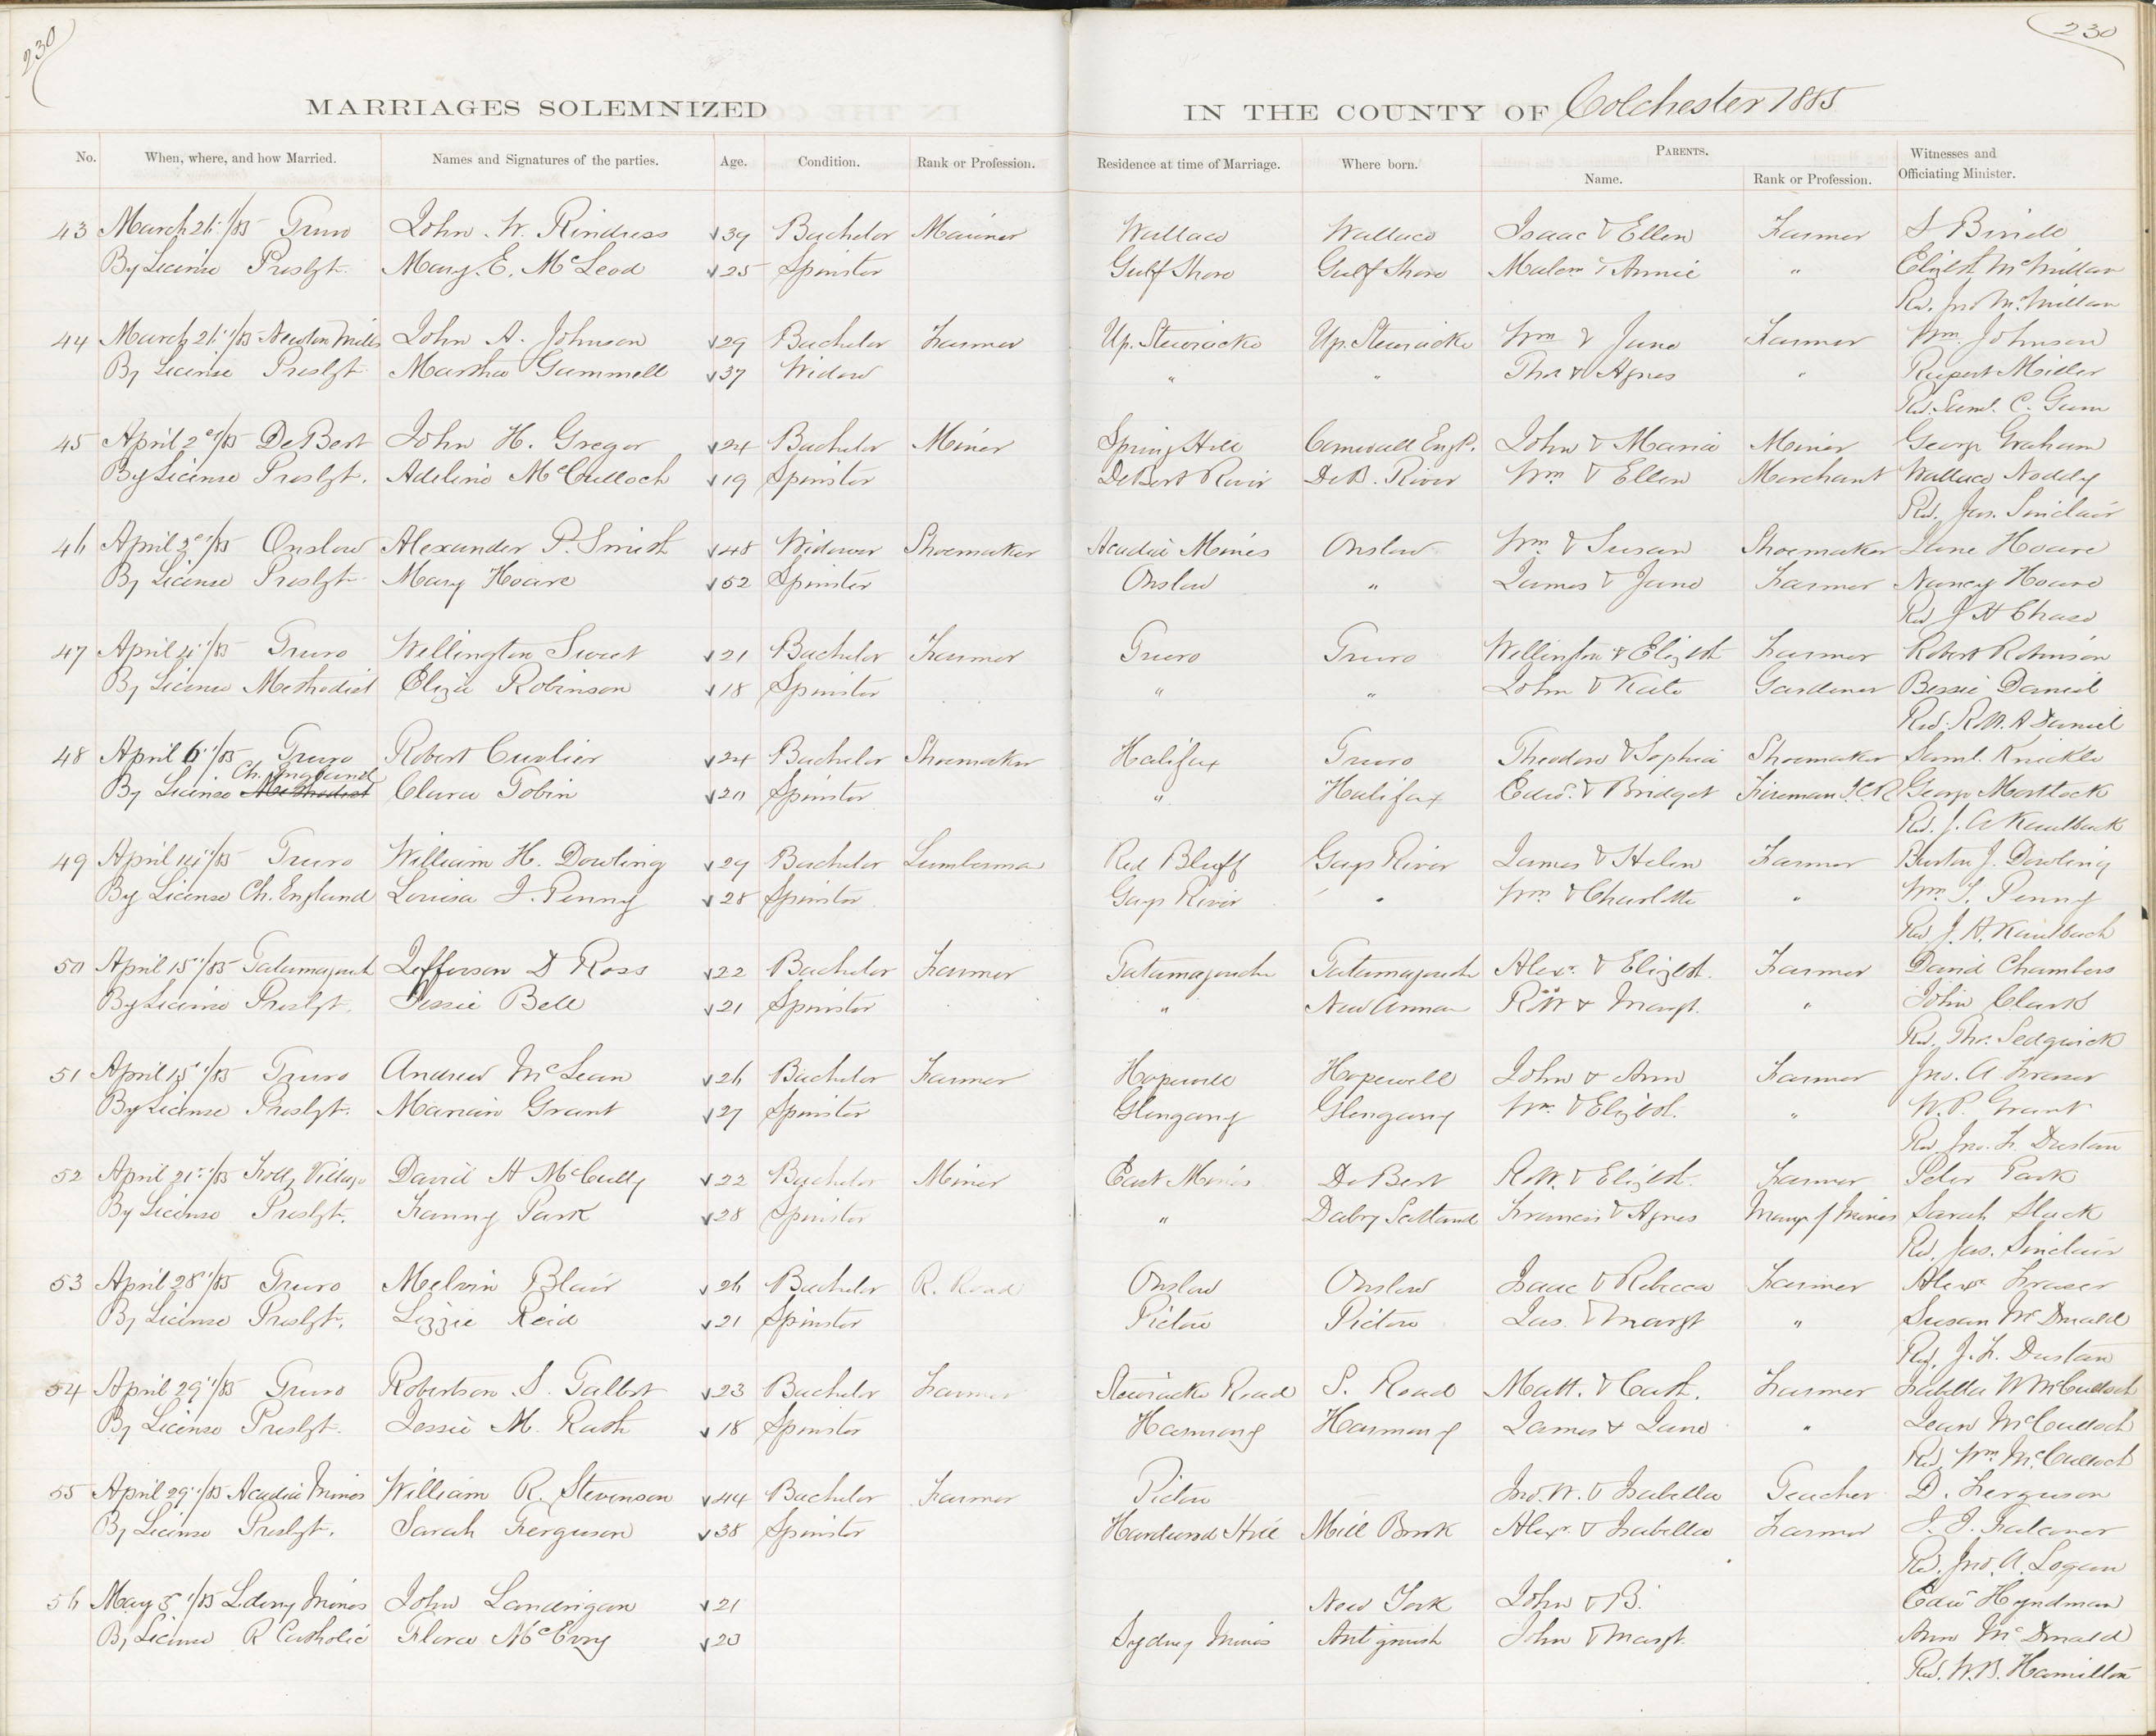 230
230
MARRIAGES SOLEMNIZED IN THE COUNTY OF Colchester 1885
No. When, where, and how Married. Names and Signatures of the parties. Age. Condition. Rank or Profession. Residence at time of Marriage. Where born. PARENTS. Name. Rank or Profession. Witnesses and Officiating Minister.
43 March 26 /85 Truro John W. Rindress 39 Bachelor Mariner Wallace Wallace Isaac & Ellen Farmer S
By License Presbyt. Mary E. McLeod 25 Spinster Gulf Shore Gulf Shore Malcm & Annie " Elizbth McMillan
Rd. Jno McMillan
44 March 26 /85 Newton Mills John A. Johnson 29 Bachelor Farmer Up. Stewiacke Up. Stewiacke Wm & Jane Farmer Wm. Johnson
By License Presbyt Martha Gammell 37 Widow " " Thos & Agnes " Rupert Miller
Rd. Saml. C. Gunn
45 April 2 /85 DeBert John H. Gregor 24 Bachelor Miner Spring Hill Cornwall Engd. John & Maria Miner George Graham
By License Presbyt. Adeline McCulloch 19 Spinster DeBert River DeB. River Wm & Ellen Merchant Wallace Noddy
Rd. Jas. Sinclair
46 April /85 Onslow Alexander P. Smith 48 Widower Shoemaker Acadia Mines Onslow Wm & Susan Shoemaker Jane Hoare
By License Presbyt Mary Hoare 52 Spinster Onslow " James & Jane Farmer Nancy Hoare
Rd J H Chase
47 April 4 /85 Truro Wellington Sweet 21 Bachelor Farmer Truro Truro Wellington & Elizbth Farmer Robert Robinson
By License Methodist Eliza Robinson 18 Spinster " " John & Kate Gardener Bessie Daniel
Rd. R. A Daniel
48 April 6 /85 Truro Robert Cuvlier 24 Bachelor Shoemaker Halifax Truro Theodore & Sophia Shoemaker Saml. Knickle
Ch. England
By License Methodist Clara Tobin 20 Spinster " Halifax Edwd. & Bridget Fireman I.C.R George Mattock
Rd. J. A Kaulback
49 April 14 /85 Truro William H. Dowling 29 Bachelor Lumberman Red Bluff Gays River James & Helen Farmer Burton J. Dowling
By License Ch. England Louisa J. Penny 28 Spinster Gays River " Wm & Charlotte " Wm. T. Penny
Rd J. A. Kaulback
50 April 15 /85 Tatamagouch Jefferson D Ross 22 Bachelor Farmer Tatamagouche Tatamagouche Alexr. & Elizbth. Farmer David Chambers
By License Presbyt. Jessie Bell 21 Spinster " New Annan & Margt. " John Clark
Rd. Thos. Sedgwick
51 April 15 /85 Truro Andrew McLean 26 Bachelor Farmer Hopewell Hopewell John & Ann Farmer Jno. A Fraser
By License Presbyt. Grant 27 Spinster Glengarry Glengarry Wm. & Elizbth. " W. P. Grant
Rd Jno. F. Dustan
52 April 21 /85 Folly Village David A McCully 22 Bachelor Miner East Mines De Bert & Elizbth. Farmer Peter Park
By License Presbyt. Fanny Park 28 Spinster " Dalry Scotland Francis & Agnes Mangr of Mines Sarah Slack
Rd. Jas. Sinclair
53 April 28 /85 Truro Melvin Blair 26 Bachelor R. Road Onslow Onslow Isaac & Rebecca Farmer Alexr Fraser
By License Presbyt. Lizzie Reid 21 Spinster Pictou Pictou Jas. & Margt " Susan McDonald
Rd. J. F. Dustan
54 April 29 /85 Truro Robertson S. Talbot 23 Bachelor Farmer Stewiacke Road S. Road Matt. & Cath. Farmer Isabella W McCulloch
By License Presbyt. Jessie M. Rath 18 Spinster Harmony Harmony James & Jane " Jean McCulloch
Rd. Wm McCulloch
55 April 29 /85 Acadia Mines William R. Stevenson 44 Bachelor Farmer Pictou — Jno. W. & Isabella Teacher D. Ferguson
By License Presbyt. Sarah Ferguson 38 Spinster Hardwood Hill Mill Brook Alexr. & Isabella Farmer J. J. Falconer
Rd. Jno. A. Logan
56 May 5 /85 Mines John Landrigan 21 New York John & B. Edwd Hyndman
By License R Catholic Flora McEvoy 20 Sydney Mines Antigonish John & Margt. Ann McDonald
Rd. W. B. Hamilton